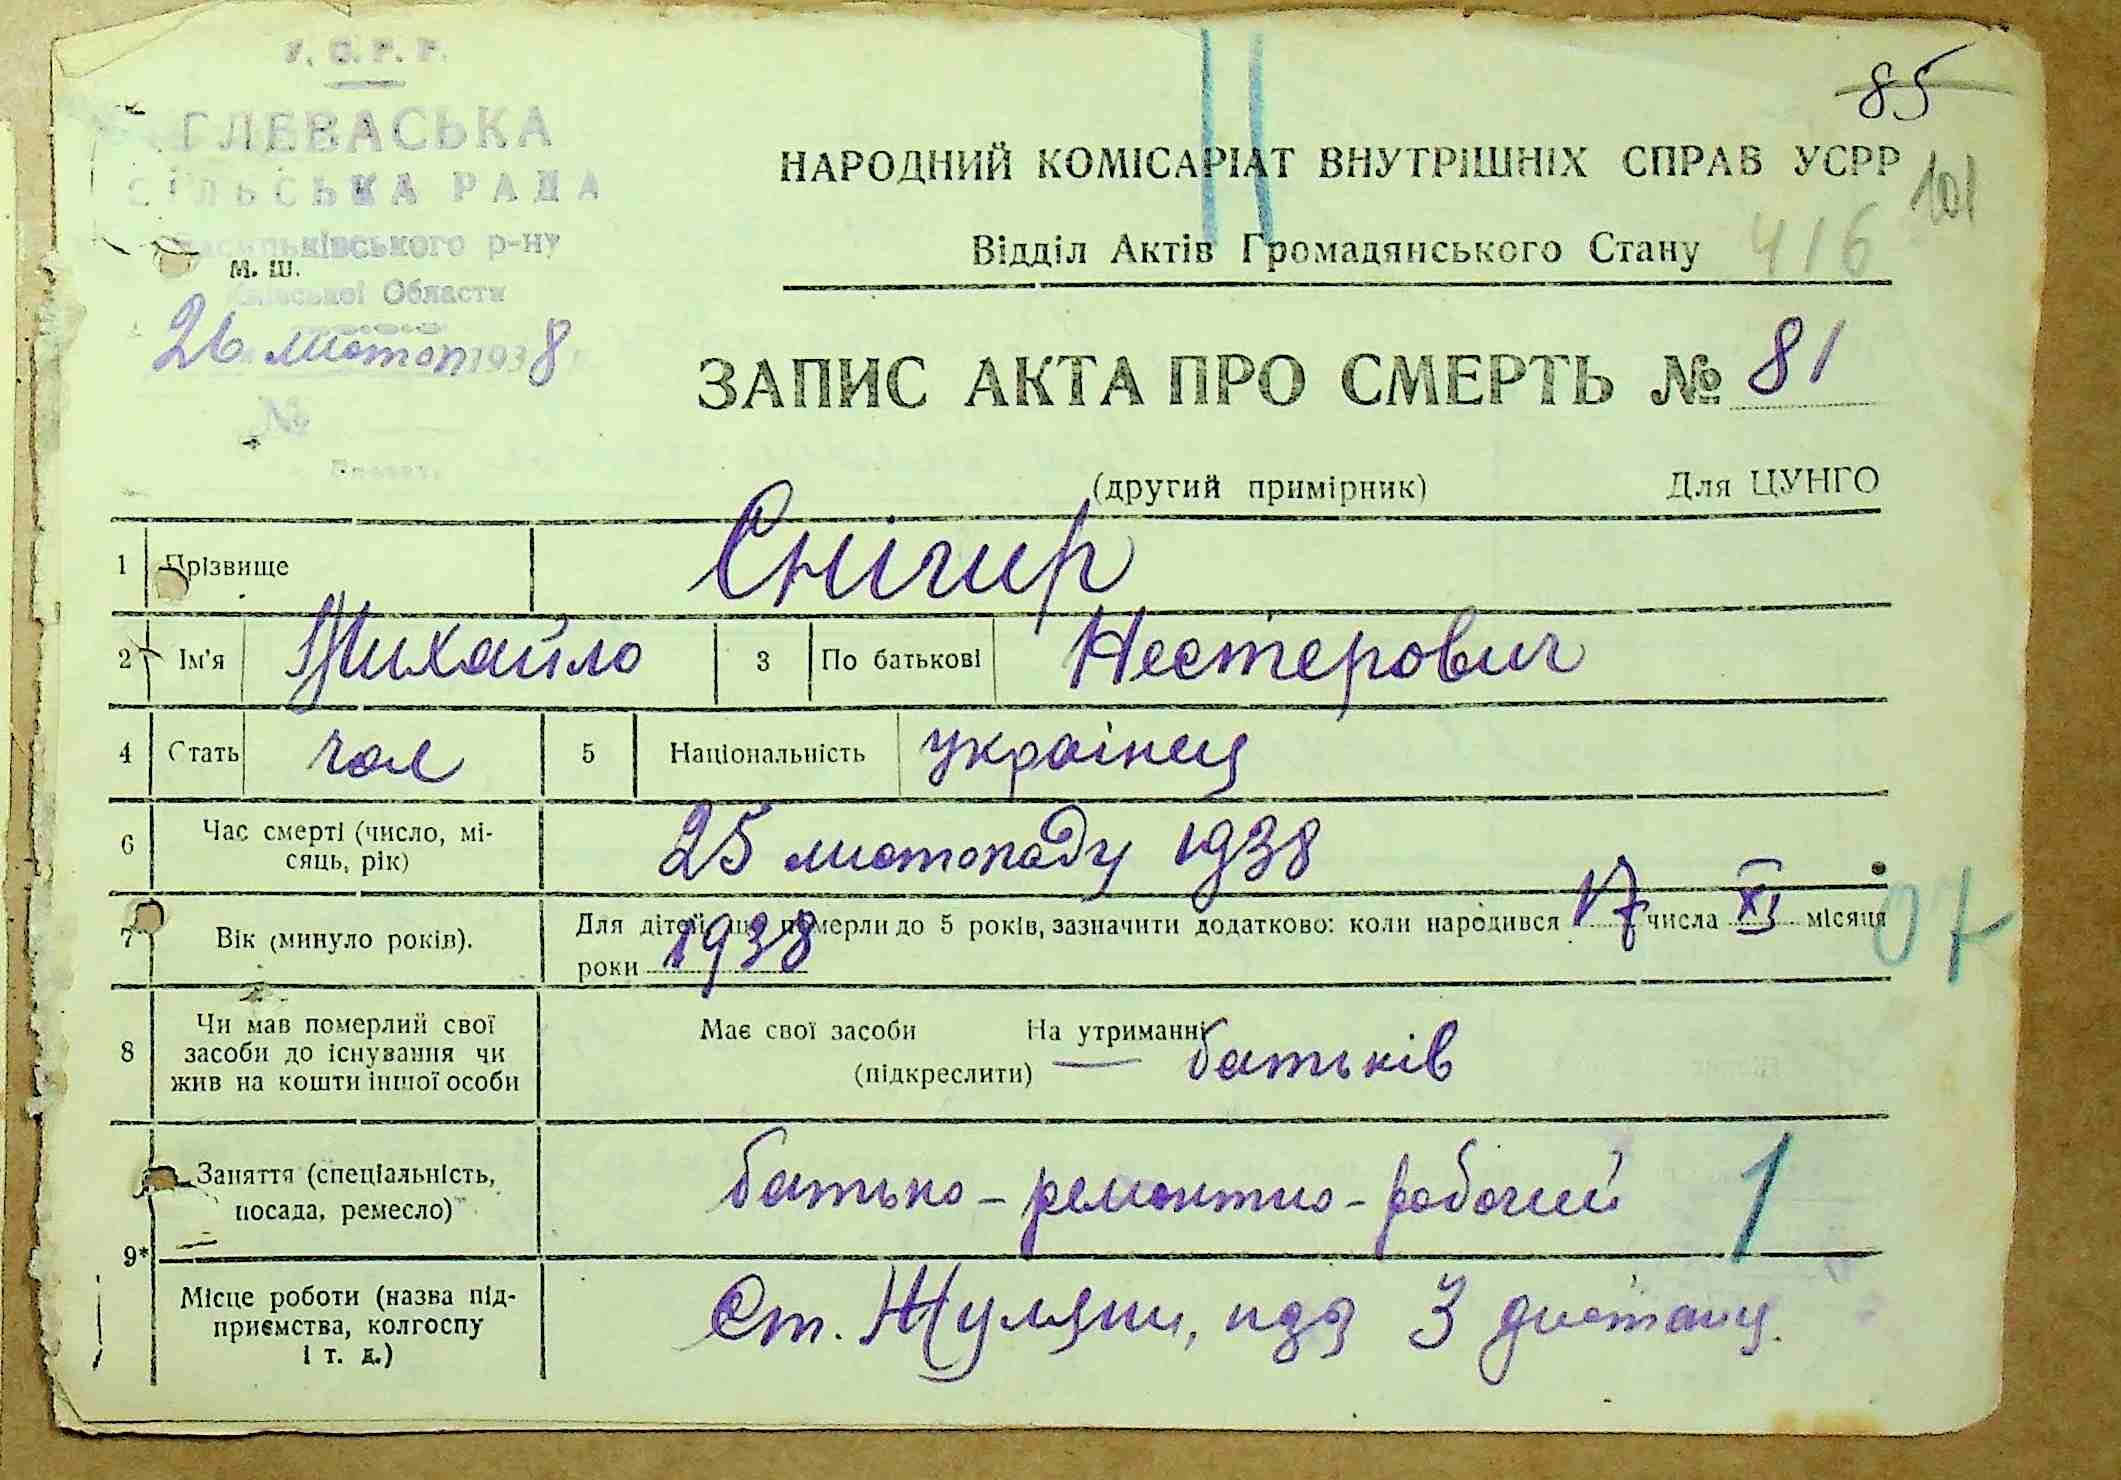 У. С. Р. Р.
ГЛЕВАСЬКА
СІЛЬСЬКА РАДА
Васильківського р-ну
М. Ш.
Київської Области
26 листоп 1938
№
85
НАРОДНИЙ КОМІСАРІАТ ВНУТРІШНІХ СПРАВ УСРР
101
Відділ Актів Громадянського Стану
416
ЗАПИС АКТА ПРО СМЕРТЬ № 81
(другий примірник) Для ЦУНГО
1 Прізвище Снігир
2 Ім'я Михайло 3 По батькові Нестерович
4 Стать чол 5 Національність українец
6 Час смерті (число, мі-
сяць, рік) 25 листопаду 1938
7 Вік (минуло років). Для дітей, що померли до 5 років, зазначити додатково: коли народився 17 числа XI місяця
роки 1938
07
8 Чи мав померлий свої
засоби до існування чи
жив на кошти іншої особи
Має свої засоби На утриманні
(підкреслити) — батьків
9* Заняття (спеціальність,
посада, ремесло) батько - ремонтно - робочий 1
Місце роботи (назва під-
приємства, колгоспу
і т. д.)
Ст. Жуляни, 3 дистанц.